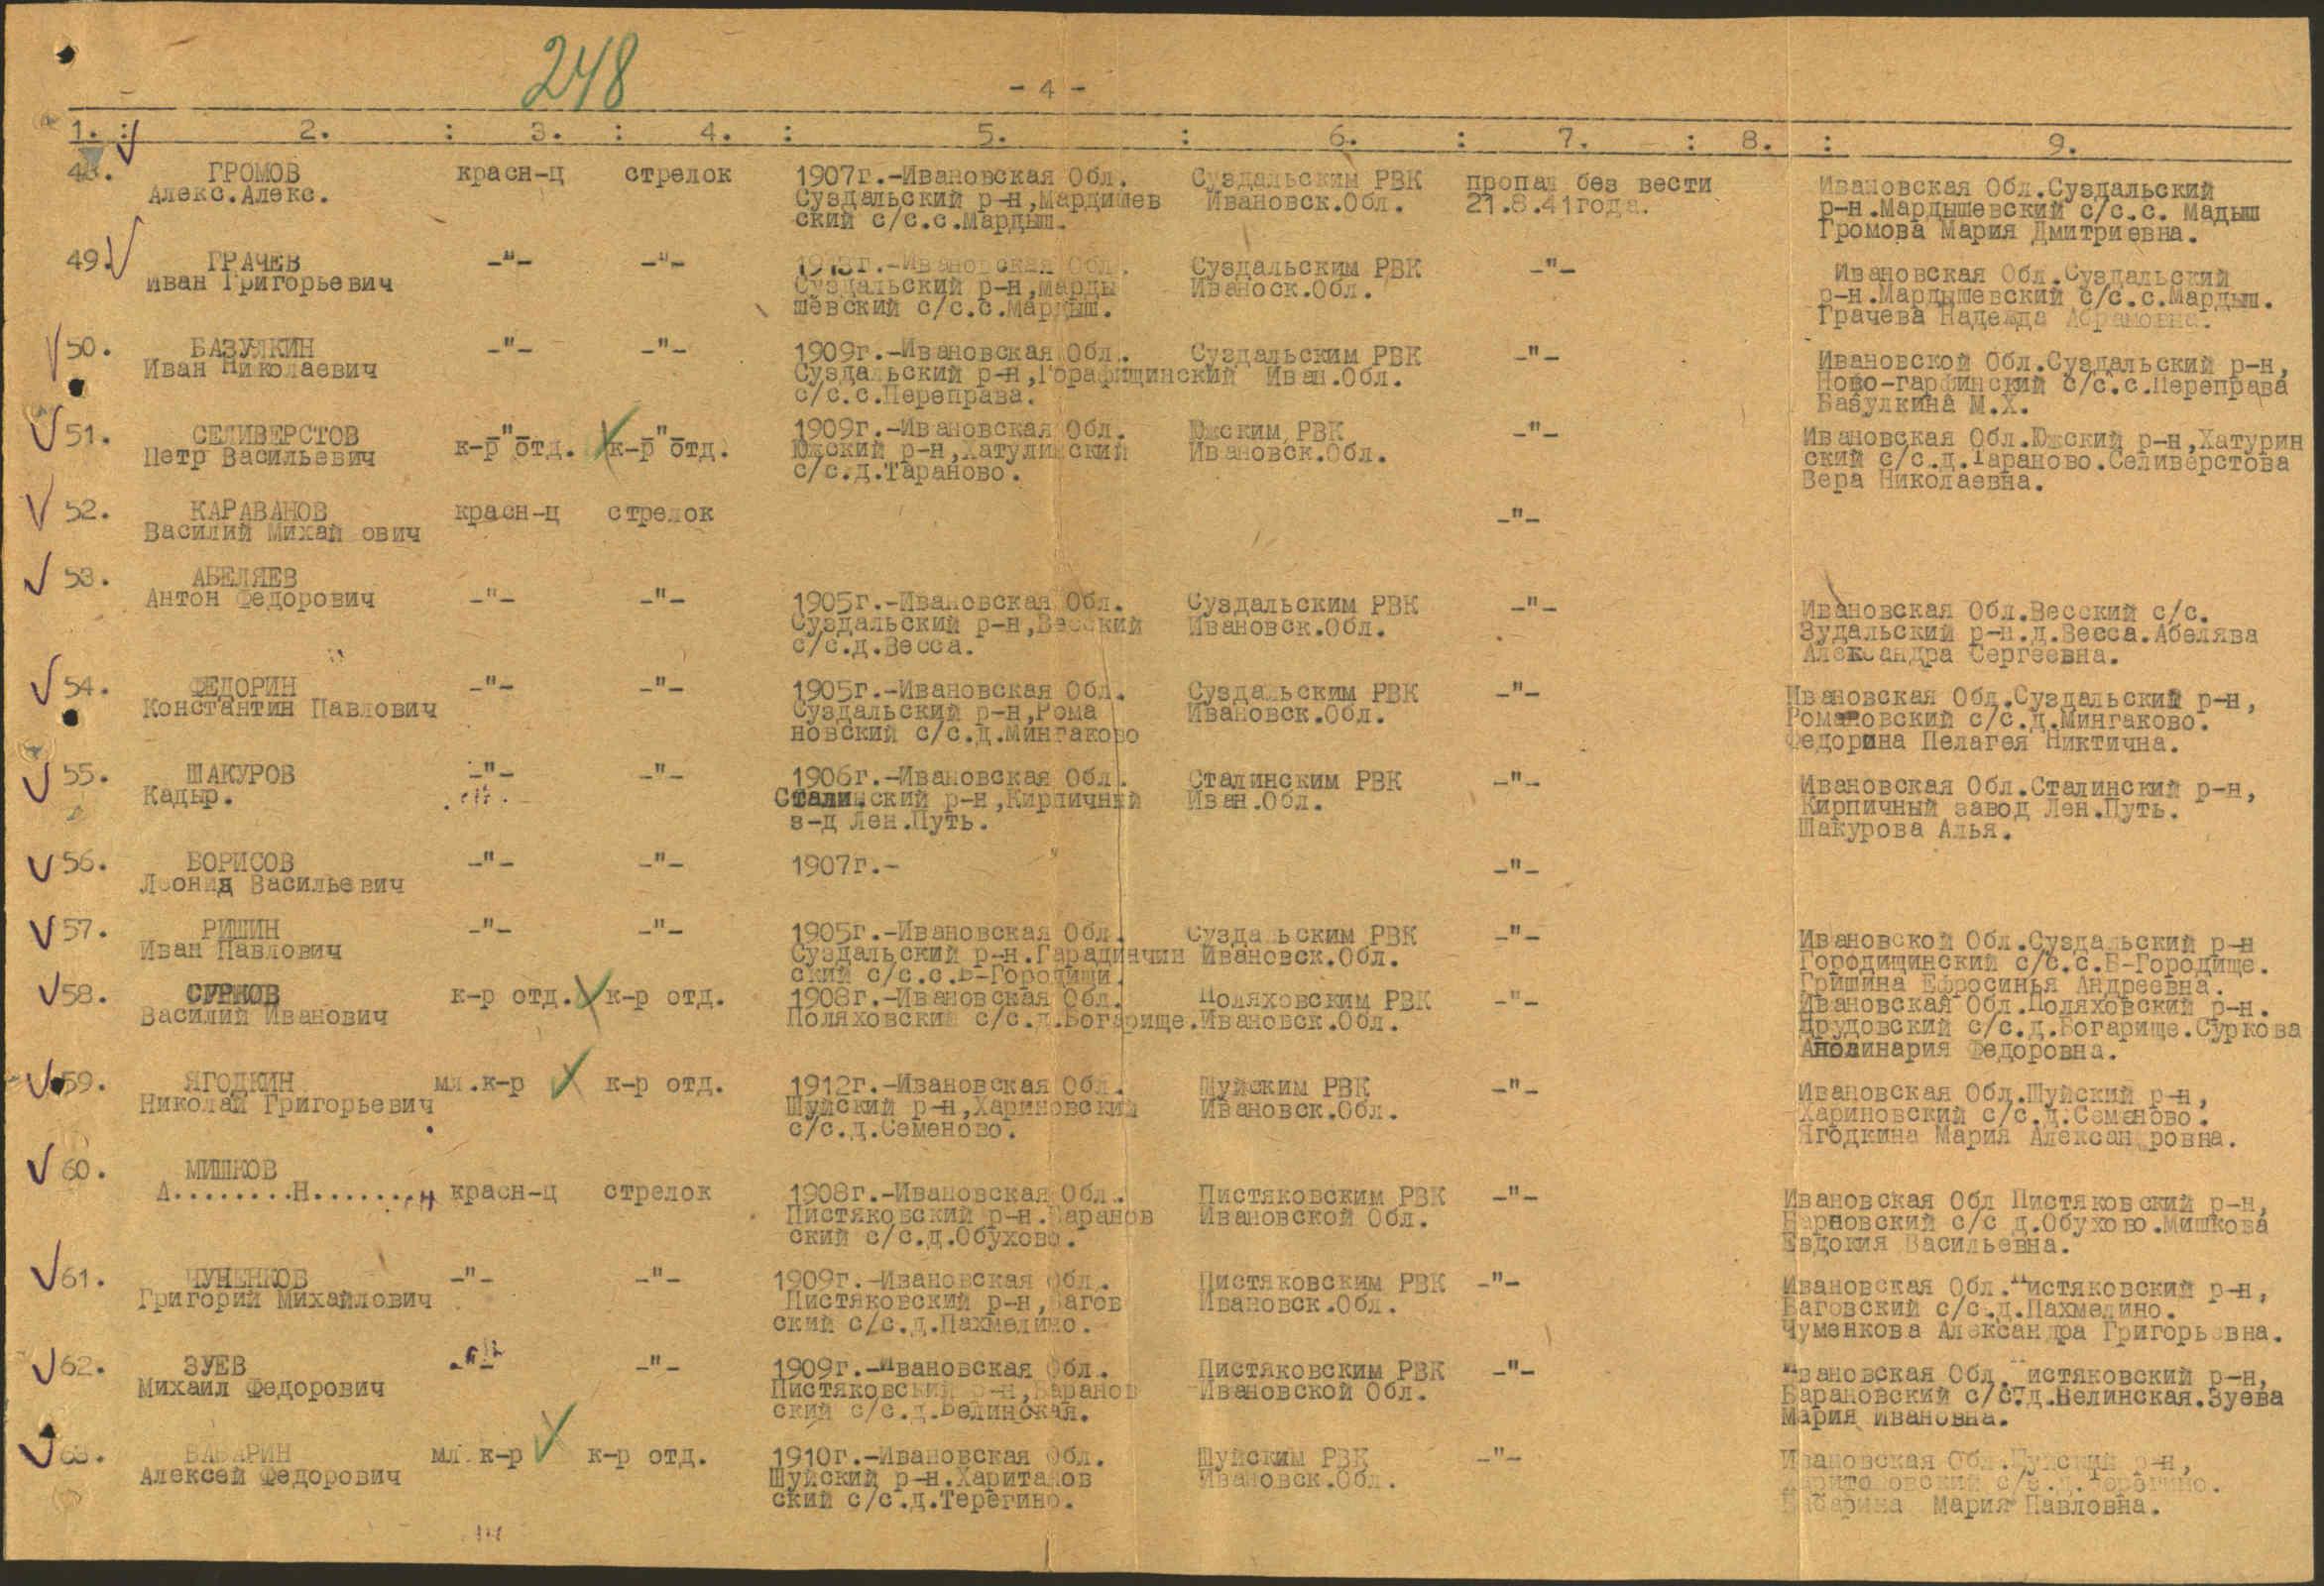 248
- 4 -
1. : 2. : 3. : 4. : 5. : 6. : 7. : 8. : 9.
48. ГРОМОВ красн-ц стрелок 1907г.-Ивановская Обл. Суздальским РВК пропал без вести Ивановская Обл.Суздальский
Алекс.Алекс. Суздальский р-н,Мардишев Ивановск.Обл. 21.8.41года. р-н.Мардышевский с/с.с. Мадыш
ский с/с.с.Мардыш. Громова Мария Дмитриевна.
49. ГРАЧЕВ -"- -"- 1913г.-Ивановская Обл. Суздальским РВК -"- Ивановская Обл.Суздальский
Иван Григорьевич Суздальский р-н,Марды Иваноск.Обл. р-н.Мардышевский с/с.с.Мардыш.
шевский с/с.с.Мардыш. Грачева Надежда Абрамовна.
50. БАЗУЛКИН -"- -"- 1909г.-Ивановская Обл. Суздальским РВК -"- Ивановской Обл.Суздальский р-н,
Иван Николаевич Суздальский р-н, Иван.Обл. с/с.с.Переправа
с/с.с.Переправа. Базулкина М.Х.
51. СЕЛИВЕРСТОВ -"- -"- 1909г.-Ивановская Обл. Южским РВК -"- Ивановская Обл.Южский р-н,Хатурин
Петр Васильевич к-р отд. к-р отд. Южский р-н,Хатулинский Ивановск.Обл. ский с/с.д.Тараново.Селиверстова
с/с.д.Тараново. Вера Николаевна.
52. КАРАВАНОВ красн-ц стрелок -"-
Василий Михай ович
53. АБЕЛЯЕВ
Антон Федорович -"- -"- 1905г.-Ивановская Обл. Суздальским РВК -"- Ивановская Обл.Весский с/с.
Суздальский р-н,Весский Ивановск.Обл. Зудальский р-н.д.Весса.Абелява
с/с.д.Весса. Александра Сергеевна.
54. ФЕДОРИН -"- -"- 1905г.-Ивановская Обл. Суздальским РВК -"- Ивановская Обл.Суздальский р-н,
Константин Павлович Суздальский р-н,Рома Ивановск.Обл. Романовский с/с.д.Мингаково.
новский с/с.д.Мингаково Федорина Пелагея Никтична.
55. ШАКУРОВ -"- -"- 1906г.-Ивановская Обл. Сталинским РВК -"- Ивановская Обл.Сталинский р-н,
Кадыр. Сталинский р-н,Кирпичный Иван.Обл. Кирпичный завод Лен.Путь.
з-д Лен.Путь. Шакурова Алья.
56. БОРИСОВ -"- -"- 1907г.- -"-
Леонид Васильевич
57. РИШИН -"- -"- 1905г.-Ивановская Обл. Суздальским РВК -"- Ивановской Обл.Суздальский р-н
Иван Павлович Суздальский р-н.Гарадинчин Ивановск.Обл. Городищинский с/с.с.В-Городище.
ский с/с.с.В-Городищи. Гришина Ефросинья Андреевна.
58. СУРКОВ к-р отд. к-р отд. 1908г.-Ивановская Обл. Поляховским РВК -"- Ивановская Обл.Поляховский р-н.
Василий Иванович Поляховский с/с.д.Богарище.Ивановск.Обл. Друдовский с/с.д.Богарище.Суркова
Аполинария Федоровна.
59. ЯГОДКИН мл.к-р к-р отд. 1912г.-Ивановская Обл. Шуйским РВК -"- Ивановская Обл.Шуйский р-н,
Николай Григорьевич Шуйский р-н,Хариновский Ивановск.Обл. Хариновский с/с.д.Семеново.
с/с.д.Семеново. Ягодкина Мария Алексан ровна.
60. МИШКОВ
А........Н....... красн-ц стрелок 1908г.-Ивановская Обл. Пистяковским РВК -"- Ивановская Обл Пистяковский р-н,
Пистяковский р-н.Баранов Ивановской Обл. Барновский с/с д.Обухово.Мишкова
ский с/с.д.Обухово. Евдокия Васильевна.
61. ЧУНЕНКОВ -"- -"- 1909г.-Ивановская Обл. Пистяковским РВК -"- Ивановская Обл.Пистяковский р-н,
Григорий Михайлович Пистяковский р-н,Вагов Ивановск.Обл. Ваговский с/с.д.Пахмелино.
ский с/с.д.Пахмелино. Чуменкова Александра Григорьевна.
62. ЗУЕВ -"- -"- 1909г.-Ивановская Обл. Пистяковским РВК -"- Ивановская Обл.Пистяковский р-н,
Михаил Федорович Пистяковский р-н,Баранов Ивановской Обл. Барановский с/с.д.Велинская.Зуева
ский с/с.д.Велинская. Мария Ивановна.
63. БАБАРИН мл.к-р к-р отд. 1910г.-Ивановская Обл. Шуйским РВК -"- Ивановская Обл.Шуйский р-н,
Алексей Федорович Шуйский р-н.Хаританов Ивановск.Обл. Харитоновский с/с.д.Терегино.
ский с/с.д.Терегино. Бабарина Мария Павловна.